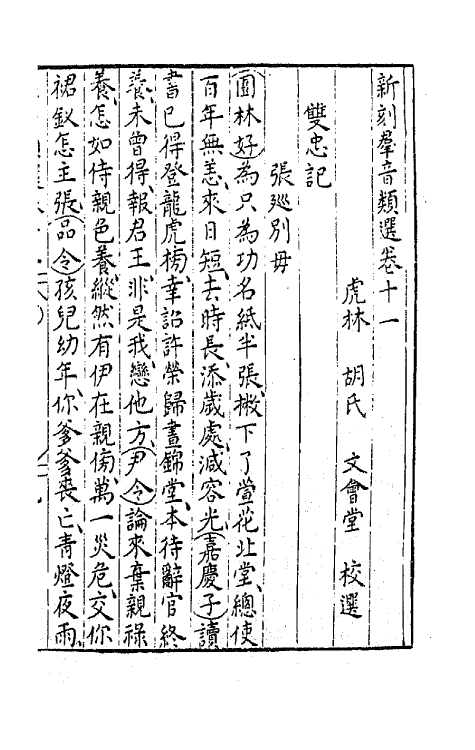 新刻羣音類選卷十一
虎林 胡氏 文會堂 校選
雙忠記
張廵別母
園林好為只為功名紙半張撇下了萱花北堂總使
百年無恙來日短去時長添歲處減容光嘉慶子讀
書已得登龍虎榜幸詔許榮歸晝錦堂本待辭官終
養未曾得報君王非是我戀他方尹令論來棄親祿
養怎如侍親色養縱然有伊在親傍萬一災危交你
裙釵怎主張品令孩兒幼年你爹爹喪亡青燈夜雨